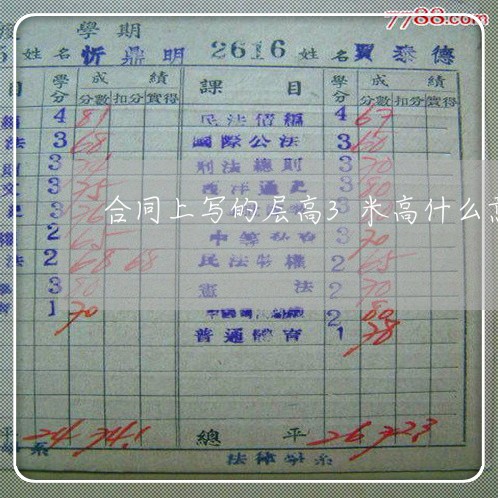 7788.com
學期
姓名 忻鼎明 2616 姓名 賈泰德
目 學分 成績 課目 學分 成績
分數 扣分 實得 分數 扣分 實得
4 81 民法債編 4 67
法 3 68 國際公法 3 60
3 刑法總則 3 70
3 75 西洋通史 3 80
合同上写的层高3米高什么意
2 65 3 70
法 2 68 68 民法物權 2 65
3 80 憲法 2 70
1 70 2 80
普通體育 1 78
平 24 74.1 總平 26 72.3
系 法律學系